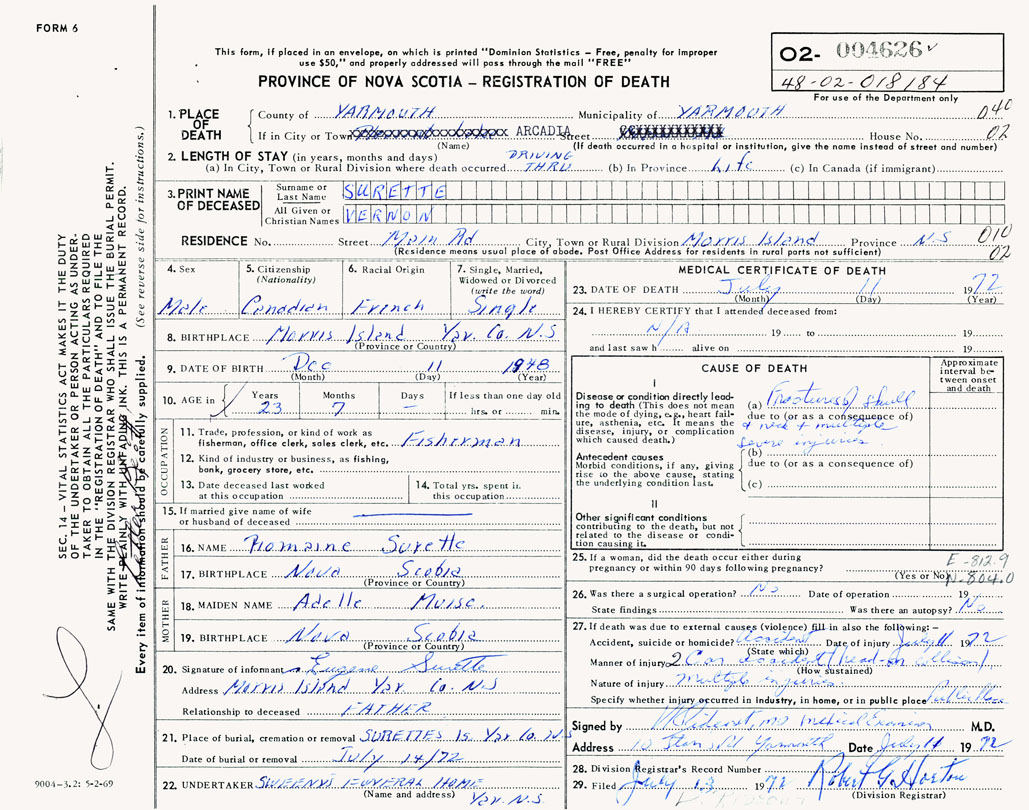 FORM 6
This form, if placed in an envelope, on which is printed "Dominion Statistics – Free, penalty for improper
use $50," and properly addressed will pass through the mail "FREE"
PROVINCE OF NOVA SCOTIA – REGISTRATION OF DEATH
02- 004626
48-02-018184
For use of the Department only
1. PLACE OF DEATH
County of YARMOUTH Municipality of YARMOUTH 040
If in City or Town ARCADIA Street House No. 02
(Name) (If death occurred in a hospital or institution, give the name instead of street and number)
2. LENGTH OF STAY (in years, months and days) DRIVING
(a) In City, Town or Rural Division where death occurred THRU (b) In Province Life (c) In Canada (if immigrant)
3. PRINT NAME OF DECEASED
Surname or Last Name SURETTE
All Given or Christian Names VERNON
RESIDENCE No. Street Main Rd City, Town or Rural Division Morris Island Province N.S 010
(Residence means usual place of abode. Post Office Address for residents in rural parts not sufficient) 02
4. Sex
Male
5. Citizenship
(Nationality)
Canadian
6. Racial Origin
French
7. Single, Married,
Widowed or Divorced
(write the word)
Single
8. BIRTHPLACE Morris Island Yar. Co. N.S
(Province or Country)
9. DATE OF BIRTH Dec 11 1948
(Month) (Day) (Year)
10. AGE in Years 23 Months 7 Days – If less than one day old
hrs. or min.
OCCUPATION
11. Trade, profession, or kind of work as
fisherman, office clerk, sales clerk, etc. Fisherman
12. Kind of industry or business, as fishing,
bank, grocery store, etc.
13. Date deceased last worked
at this occupation
14. Total yrs. spent in
this occupation
15. If married give name of wife
or husband of deceased
FATHER
16. NAME Romaine Surette
17. BIRTHPLACE Nova Scobia
(Province or Country)
MOTHER
18. MAIDEN NAME Adelle Muise.
19. BIRTHPLACE Nova Scobia
(Province or Country)
20. Signature of informant Eugene Surette
Address Morris Island Yar. Co. N.S
Relationship to deceased FATHER
21. Place of burial, cremation or removal SURETTES Is Yar Co N.S
Date of burial or removal July 14/72
22. UNDERTAKER SWEENYS FUNERAL HOME
(Name and address) Yar. N.S.
MEDICAL CERTIFICATE OF DEATH
23. DATE OF DEATH July 11 1972
(Month) (Day) (Year)
24. I HEREBY CERTIFY that I attended deceased from:
N/A 19 to 19
and last saw h alive on 19
CAUSE OF DEATH
Approximate
interval be-
tween onset
and death
I
Disease or condition directly lead-
ing to death (This does not mean
the mode of dying, e.g., heart fail-
ure, asthenia, etc. It means the
disease, injury, or complication
which caused death.)
(a) Fractured skull
due to (or as a consequence of)
& neck & multiple
severe injuries
Antecedent causes
Morbid conditions, if any, giving
rise to the above cause, stating
the underlying condition last.
(b)
due to (or as a consequence of)
(c)
II
Other significant conditions
contributing to the death, but not
related to the disease or condi-
tion causing it.
25. If a woman, did the death occur either during
pregnancy or within 90 days following pregnancy?
(Yes or No)
E-812.9
N-804.0
26. Was there a surgical operation? No Date of operation 19
State findings Was there an autopsy? No
27. If death was due to external causes (violence) fill in also the following: –
Accident, suicide or homicide? Accident Date of injury July 11 1972
(State which)
Manner of injury 2 Car accident (head-on collision)
(How sustained)
Nature of injury Multiple injuries.
Specify whether injury occurred in industry, in home, or in public place Public Place
Signed by MD Medical Examiner M.D.
Address Yarmouth Date July 11 1972
28. Division Registrar's Record Number
29. Filed July 13 1972 Robert G. Horton
(Division Registrar)
SEC. 14 – VITAL STATISTICS ACT MAKES IT THE DUTY
OF THE UNDERTAKER OR PERSON ACTING AS UNDER-
TAKER TO OBTAIN ALL THE PARTICULARS REQUIRED
IN THE "REGISTRATION OF DEATH" AND TO FILE THE
SAME WITH THE DIVISION REGISTRAR WHO SHALL ISSUE THE BURIAL PERMIT.
WRITE PLAINLY WITH UNFADING INK. THIS IS A PERMANENT RECORD.
Every item of information should be carefully supplied. (See reverse side for instructions.)
9004-3.2: 5-2-69